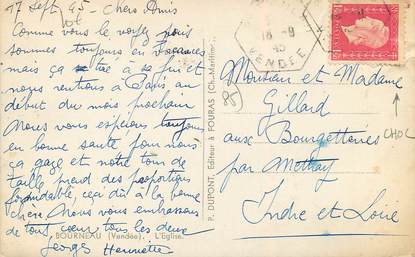 17 Sept 45 Chers Amis
Comme vous le voyez nous
sommes toujours en vacances
mais ça tire à sa fin et
nous rentrons à Paris au
début du mois prochain
Nous vous espérons toujours
en bonne santé pour nous
ça gaze et notre tour de
taille prend des proportions
formidables, ceci dû à la bonne
chère. Nous vous embrassons
de tout cœur tous les deux
Georges Henriette
BOURNEAU (Vendée). L'Eglise.
P. DUPONT, Editeur à FOURAS (Ch.-Maritime)
18 -9
45
VENDEE
85
Monsieur et Madame
Gillard
aux Bourgetteries
CHDL
par Mettray
Indre et Loire